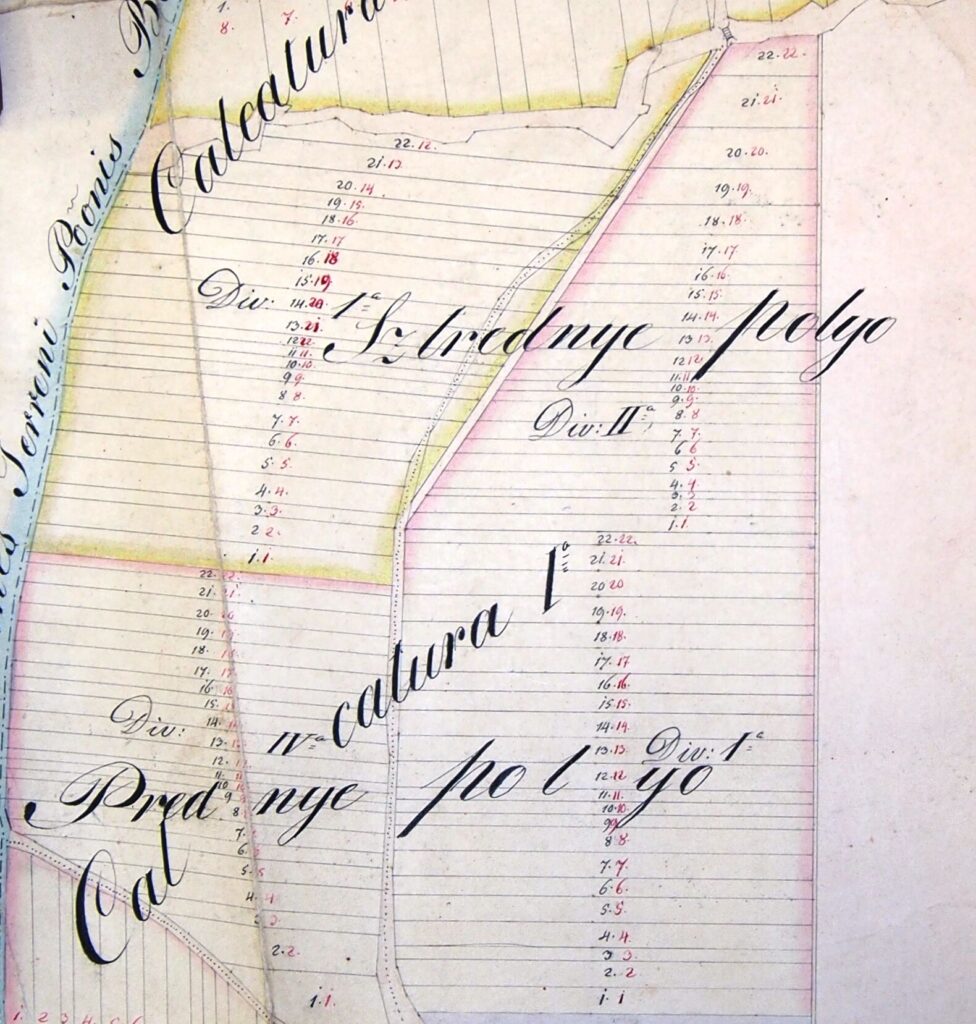 1. 7.
8.
Calcatura
Poonis
Terreni
22. 12.
21. 13
20. 14
19. 15.
18. 16
17. 17
16. 18
15. 19
14. 20
13. 21
12 22
11 11.
10. 10.
9 9.
8 8.
7. 7.
6. 6.
5. 5.
4. 4.
3. 3.
2 2.
1. 1.
22. 22.
21. 21.
20. 20.
19. 19.
18. 18.
17. 17
16. 16.
15. 15.
14. 14.
13 13.
12 12
11. 11
10. 10.
9. 9.
8. 8
7. 7.
6 6
5 5.
4. 4
3. 3
2. 2
1. 1.
Div: 1ª Sztrednye polyo
Div: IIª
22. 22.
21. 21.
20 20
19. 19.
18. 18.
17. 17
16. 16.
15. 15.
14. 14.
13. 13.
12. 12
11. 11.
10. 10.
9 9
8 8.
7. 7.
6. 6.
5. 5.
4. 4.
3 3
2. 2
1. 1
22. 22.
21. 21.
20. 20
19. 19
18. 18
17. 17
16. 16
15. 15
14. 14
13. 13
12. 12
11. 11
10 10
9
8
7.
6.
5. 5
4. 4
3
2. 2.
1. 1.
Calcatura Iª
Div: IVª
Div: 1ª
Prednye polyo
1. 2 3 4. 5 6